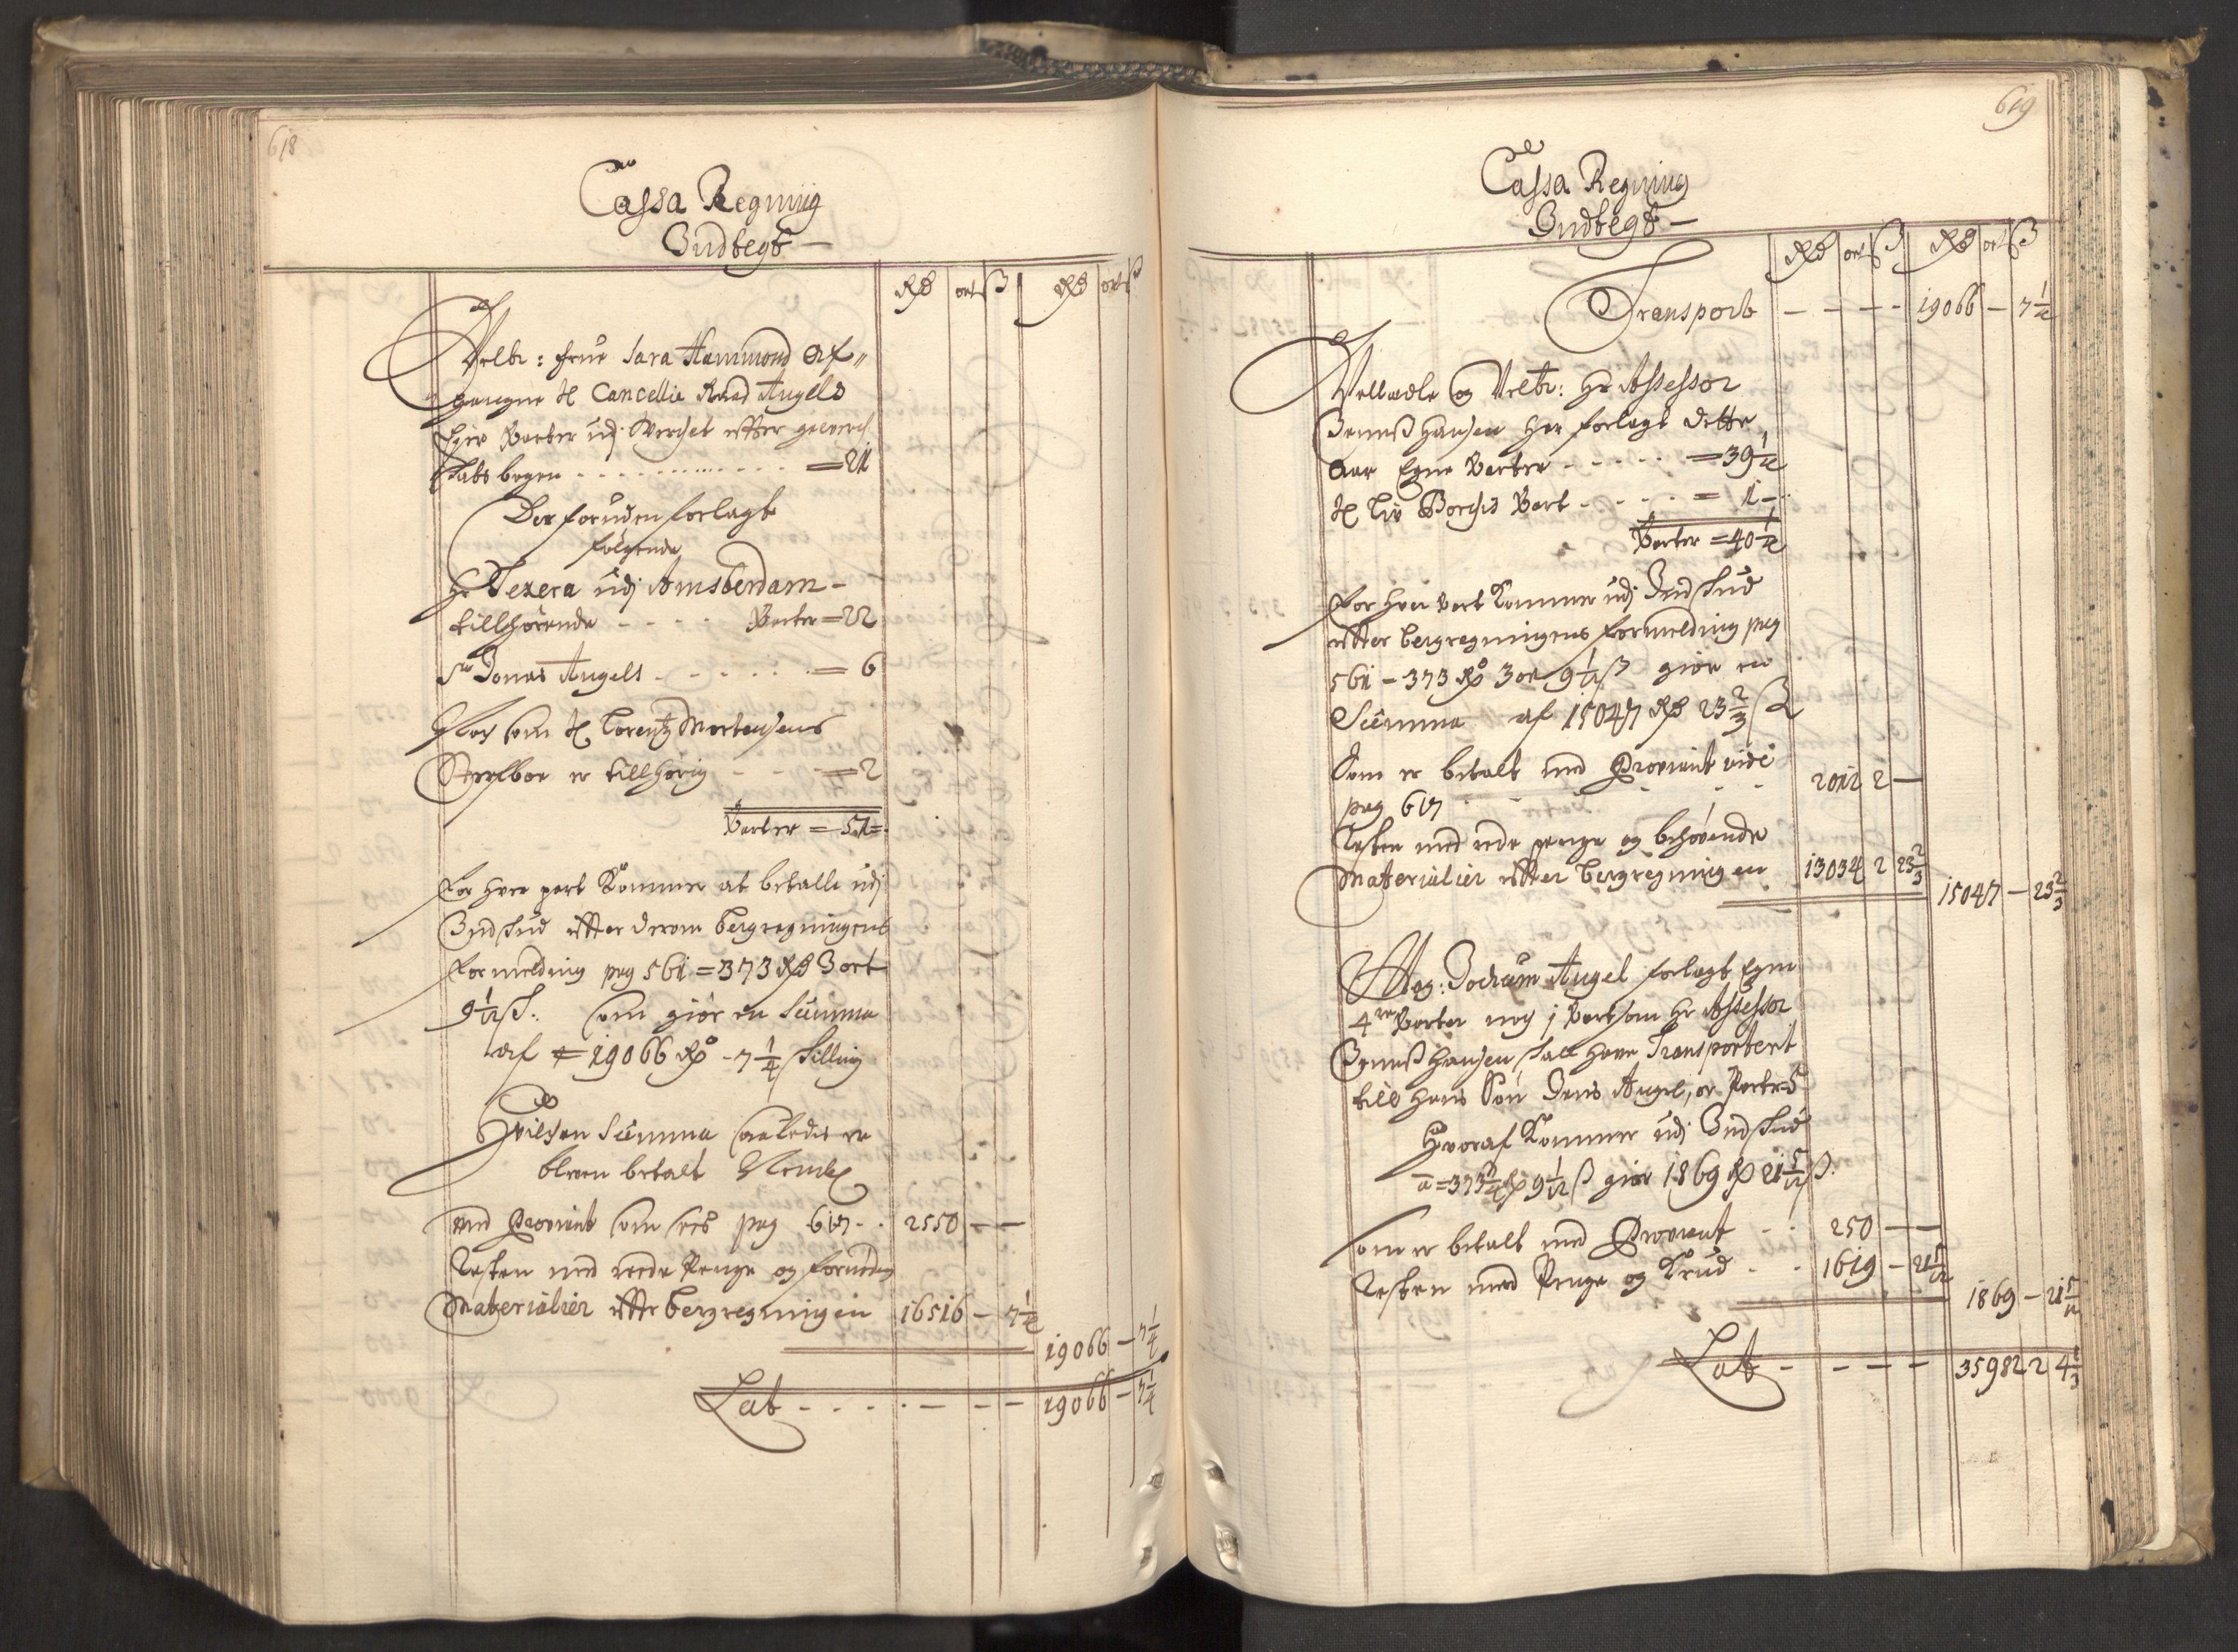 618
Cassa Regning
Indtegt
Rd ort ß Rd ort ß
Velb: Frue Sara Hammond Af„
gangne H Cancellie Raad Angels
Egne Parter udj Verchet efter gewerch
skabs bogen - - - = 21
Der foruden forlagt
følgende
Hr Texera udj Amsterdam -
tillhørende - - - - Parter = 22
Sr Jonas Angell - - - - - = 6
Noch som H Lorentz Mortensens
Sterfboe er tillhørig - - - = 2
Parter = 51 =
For hver part Kommer at betalle udj
Indskud efter derom bergregningens
Formelding pag 561 = 373 Rd 3 ort
9 1/12 ß: som giør en Summa
af = 19066 Rd - 7 1/4 skilling
Hvilken Summa saaledis er
bleven betalt Nemlig
med Proviant som sees pag 617 - - 2550 - -
Resten med reede Penge og fornøden
Materialier efter bergregningen 16516 - 7 1/4
19066 - 7 1/4
Lat - - - - - - - 19066 - 7 1/4
619
Cassa Regning
Indtegt
Rd ort ß Rd ort ß
Transport - - - - 19066 - 7 1/4
Velædle og Velb: Hr Assessor
Jenns Hansen har forlagt dette
Aar Egne Parter - - - - - = 39 1/4
H Borchs Part - - - - = 1 -
Parter = 40 1/4
For hver Part Kommer udj Indskud
efter bergregningens formelding pag
561 - 373 Rd 3 ort 9 1/12 ß giør en
Summa af 15047 Rd 23 2/3 ß
Som er betalt med Proviant vide
pag 617 - - - - 2012 2 -
Resten med rede penge og behøvende
Materialier efter bergregningen 13034 2 23 2/3
15047 - 23 2/3
Mag: Jochum Angel forlagt Egne
4re Parter noch 1 Part som Hr Assessor
Jenns Hansen skall have Transporterit
till hans Søn Angel, er Parter 5
Hvoraf Kommer udj Indskud
a = 373 3/4 Rd 9 1/12 ß giør 1869 Rd 21 5/12 ß
som er betalt med Proviant - - 250 - -
Resten med Penge og Krud - - 1619 - 21 5/12
1869 - 21 5/12
Lat - - - - 35982 2 4 1/3